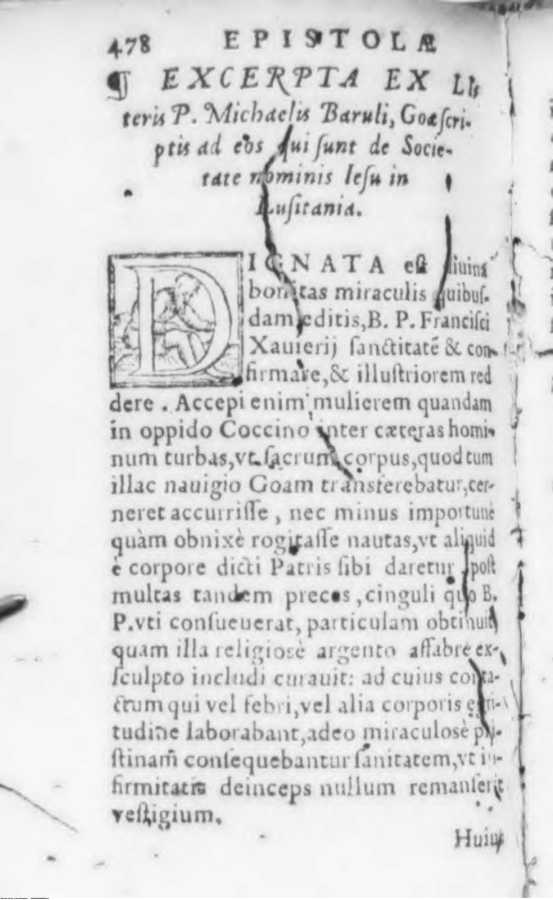 478 EPISTOLÆ
¶ EXCERPTA EX LI
teris P. Michaelis Baruli, Goæ scri-
ptis ad eos qui sunt de Socie-
tate nominis Iesu in
Lusitania.
DIGNATA est diuina
bonitas miraculis quibus-
dam editis, B. P. Francisci
Xauierij sanctitatē & con-
firmare, & illustriorem red
dere. Accepi enim mulierem quandam
in oppido Coccino inter cæteras homi-
num turbas, vt sacrum corpus, quod tum
illac nauigio Goam transferebatur, cer-
neret accurrisse, nec minus importunè
quàm obnixè rogitasse nautas, vt aliquid
è corpore dicti Patris sibi daretur post
multas tandem preces, cinguli quo B.
P. vti consueuerat, particulam obtinuit,
quam illa religiosè argento affabre ex-
sculpto includi curauit: ad cuius conta-
ctum qui vel febri, vel alia corporis ægri-
tudine laborabant, adeo miraculosè pri-
stinam consequebantur sanitatem, vt in-
firmitatis deinceps nullum remanserit
vestigium.
Huius